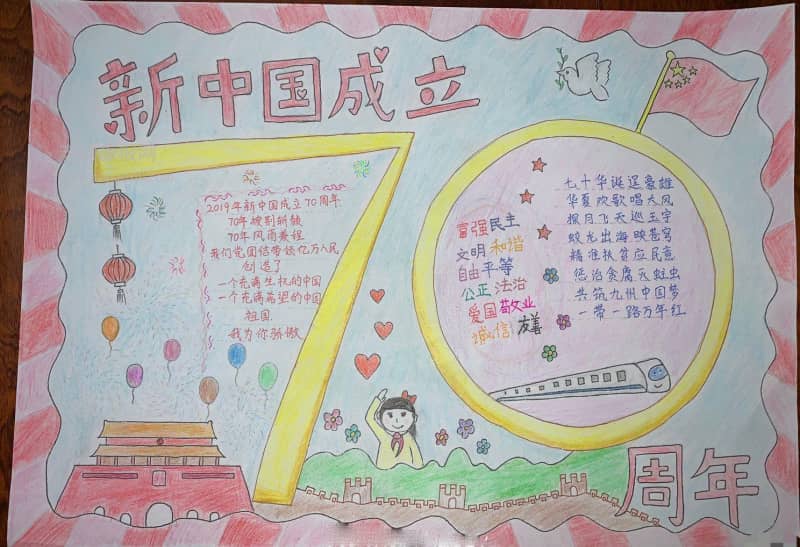 新中国成立
70
周年
2019年新中国成立70周年
70年披荆斩棘
70年风雨兼程
我们党团结带领亿万人民
创造了
一个充满生机的中国
一个充满希望的中国
祖国
我为你骄傲
富强民主
文明和谐
自由平等
公正法治
爱国敬业
诚信友善
七十华诞逞豪雄
华夏欢歌唱大风
探月飞天巡玉宇
蛟龙出海映苍穹
精准扶贫应民意
惩治贪腐灭蛀虫
共筑九州中国梦
一带一路万年红